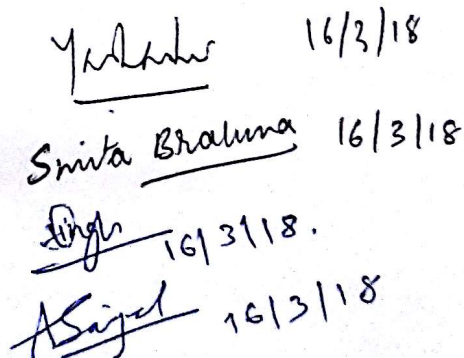 16/3/18
Smita Brahma 16/3/18
Singh 16/3/18.
16/3/18